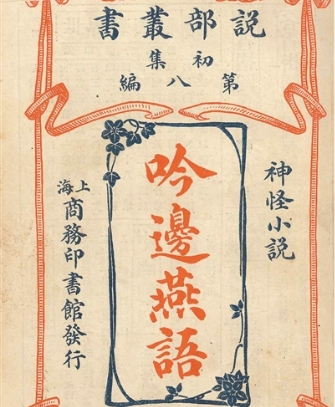 說部叢書
初集
第八編
神怪小説
吟邊燕語
上海商務印書館發行